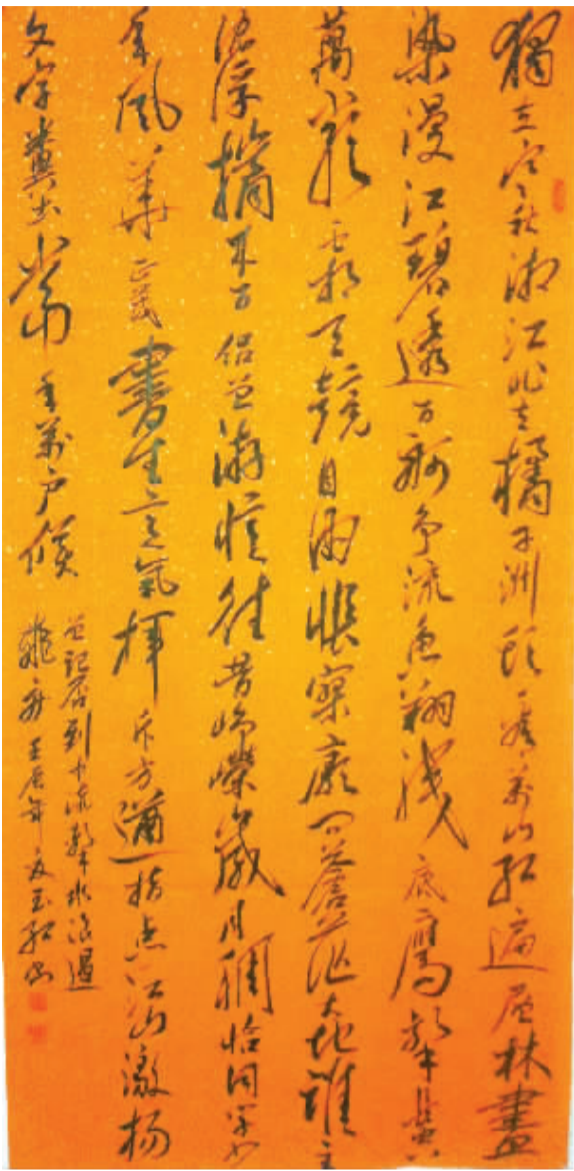 獨立寒秋湘江北去橘子洲頭看萬山紅遍層林盡
染漫江碧透百舸争流魚翔淺底鷹擊長空
萬類霜天競自由悵寥廓問蒼茫大地誰主
沉浮攜來百侣曾游憶往昔崢嶸歲月稠恰同學少
年風華正茂書生意氣揮斥方遒指點江山激揚
文字糞土當年萬户侯
曾記否到中流擊水浪遏
飛舟 壬辰年